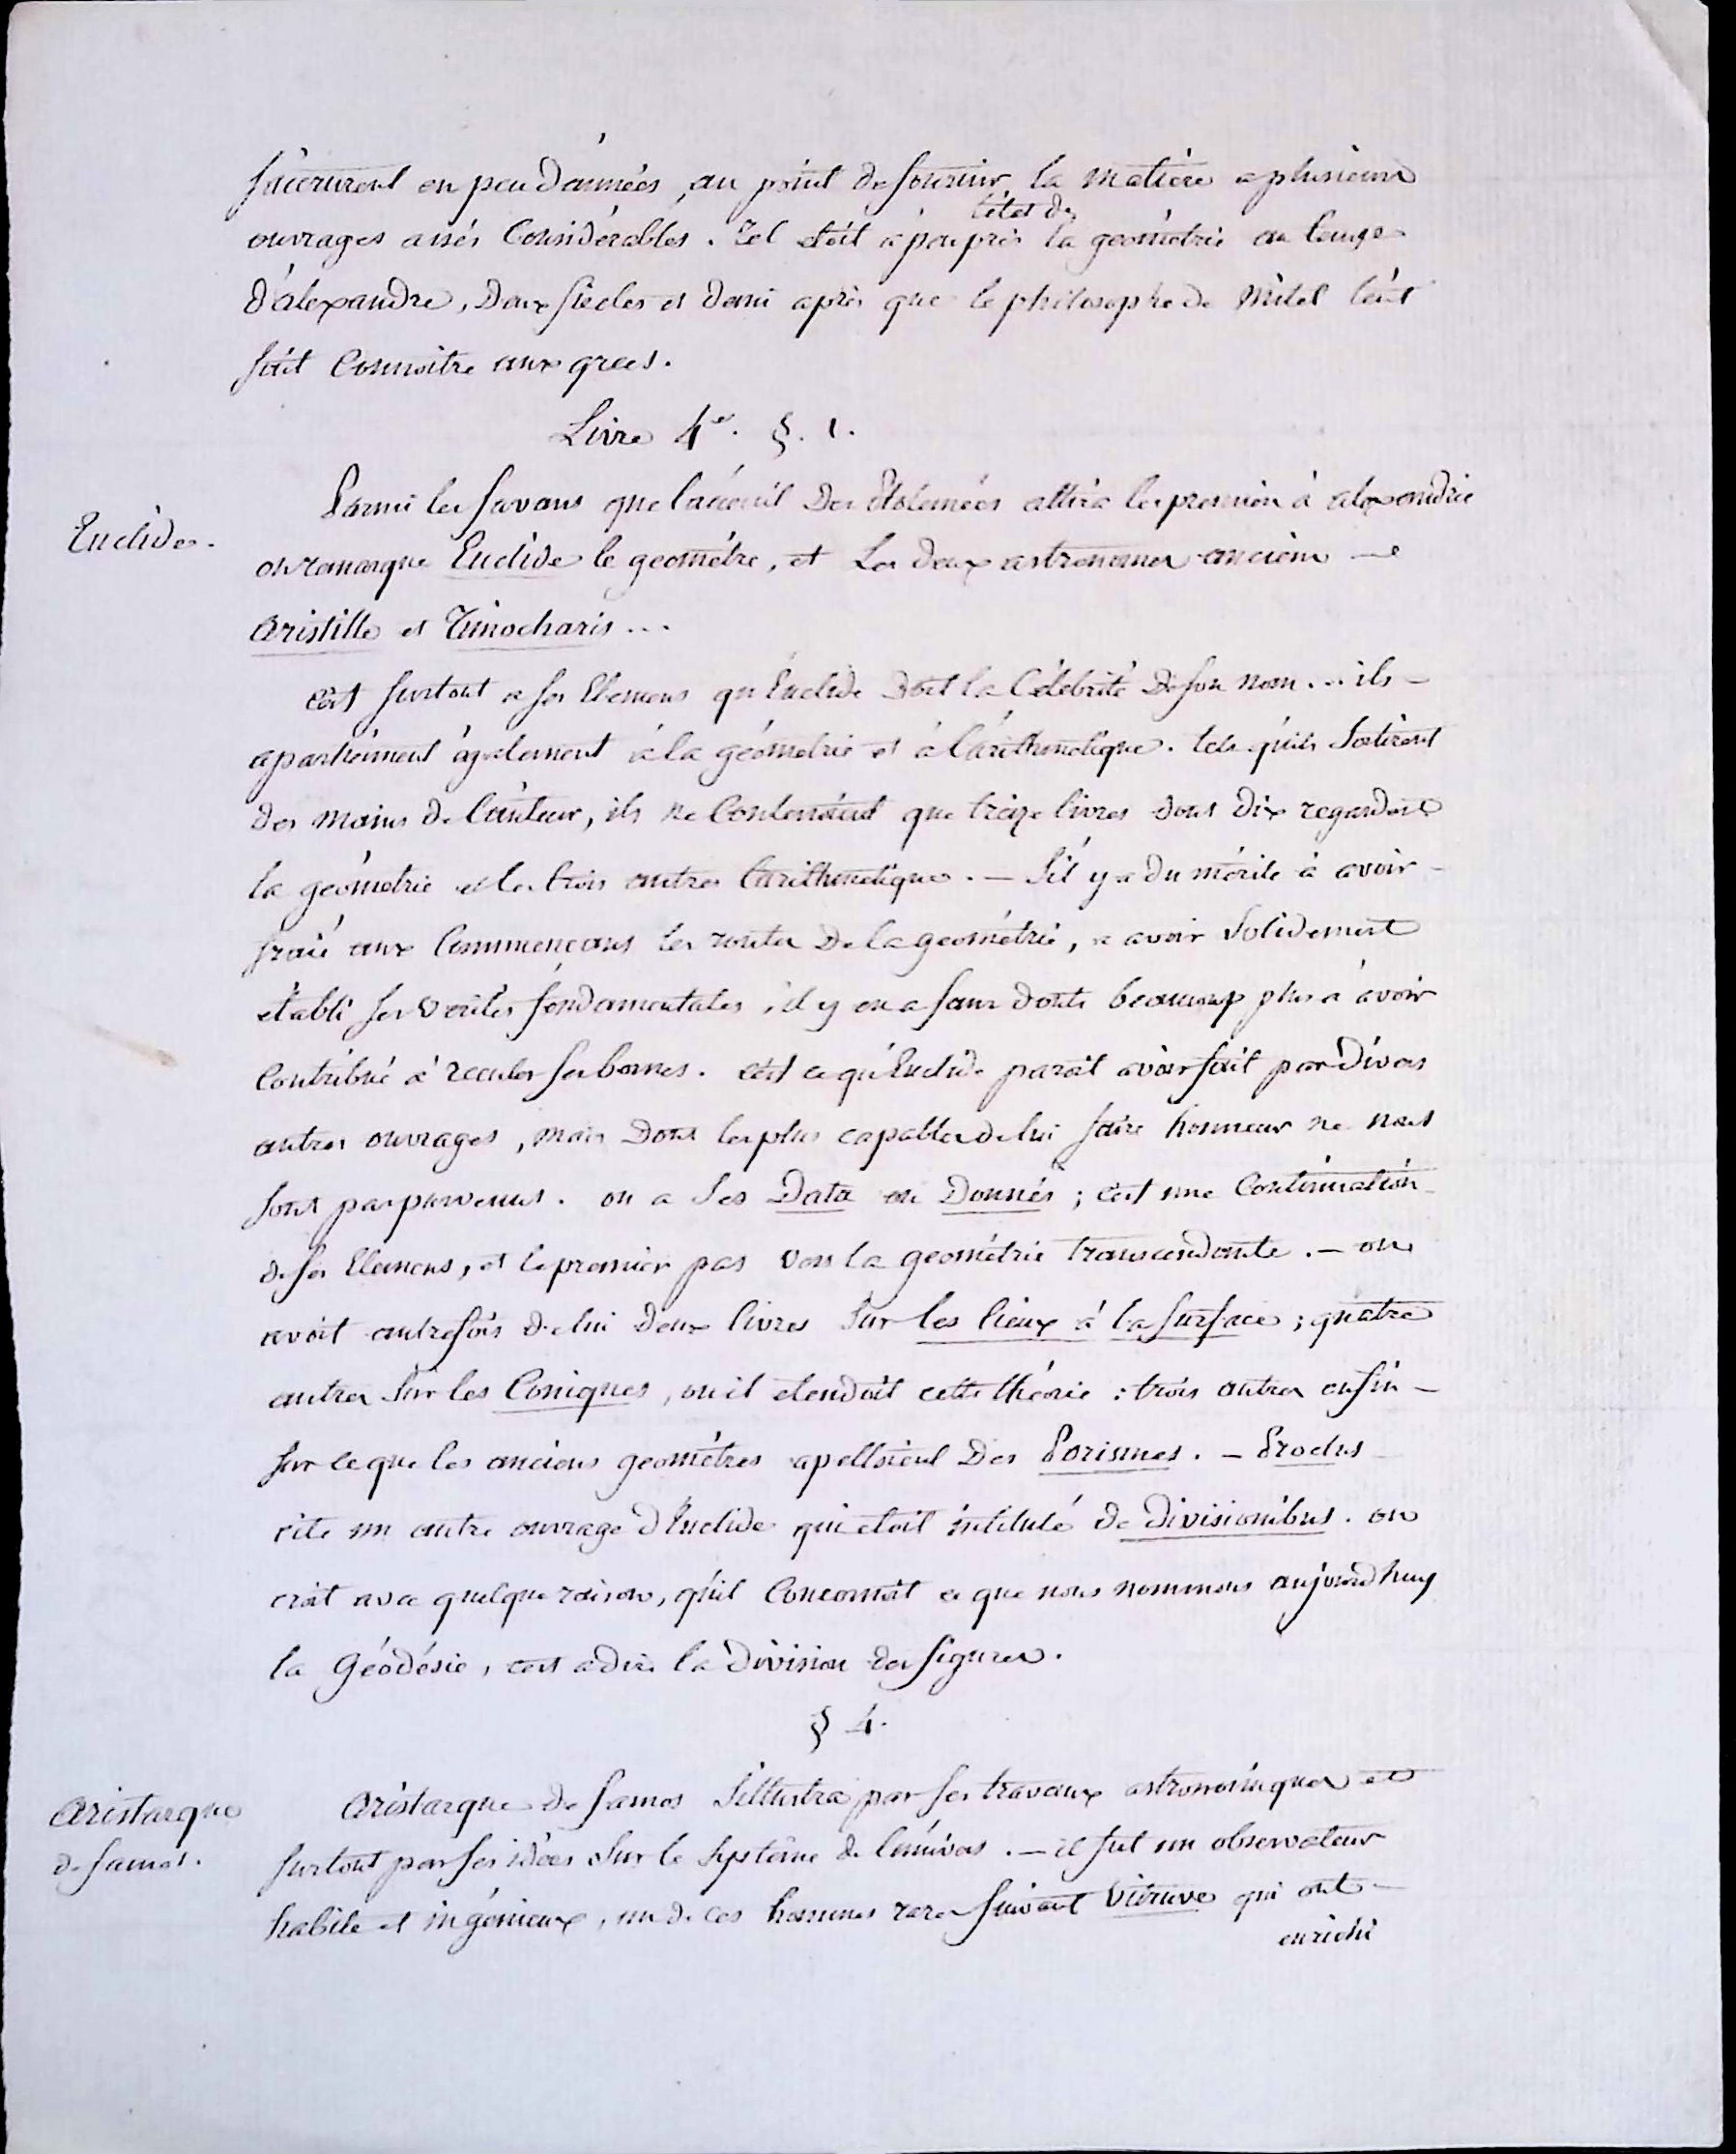 s'accrurent en peu d'années, au point de fournir la matiere a plusieurs
l'état de
ouvrages assés Considérables. Tel etoit a peu près la geométrie au temps
d'alexandre, deux siecles et demi après que le philosophe de Milet l'eut
fait Connoitre aux grecs.
Livre 4e. §. 1.
Parmi les savans que l'acceuil des Ptolemées attira les premiers à alexandrie
Euclide.
on remarque Euclide le geométre, et les deux astronomes anciens
Aristille et Timocharis...
c'est surtout a ses Elemens qu'Euclide doit la Célébrité de son nom... ils -
apartiennent également à la géometrie et à l'arithmetique. tels qu'ils sortirent
des mains de l'auteur, ils ne Contenoient que treize livres dont dix regardoient
la geométrie et les trois autres l'arithmetique. - S'il y a du mérite à avoir -
fraié aux Commençans les routes de la geométrie, a avoir solidement
établi ses verités fondamentales, il y en a sans doute beaucoup plus a avoir
Contribué à reculer ses bornes. c'est ce qu'Euclide paroit avoir fait par divers
autres ouvrages, mais dont les plus capables de lui faire honneur ne nous
sont pas parvenus. on a ses Data ou Donnés; c'est une Continuation
de ses Elemens, et le premier pas vers la geométrie transcendante. - on
avoit autrefois de lui deux livres sur les lieux à la surface; quatre
autres sur les Coniques, ou il etendoit cette théorie : trois autres enfin -
sur ce que les anciens geométres apelloient des Porismes. - Proclus
cite un autre ouvrage d'Euclide qui etoit intitulé de Divisionibus. on
croit avec quelque raison, qu'il Concernoit ce que nous nommons aujourd'huy
la Géodésie, c'est a dire la division des figures.
§ 4.
Aristarque
de Samos.
Aristarque de Samos s'illustra par ses travaux astronomiques et
surtout par ses idées sur le système de l'univers. - il fut un observateur
habile et ingénieux, un de ces hommes rares suivant Vitruve qui ont -
enrichi